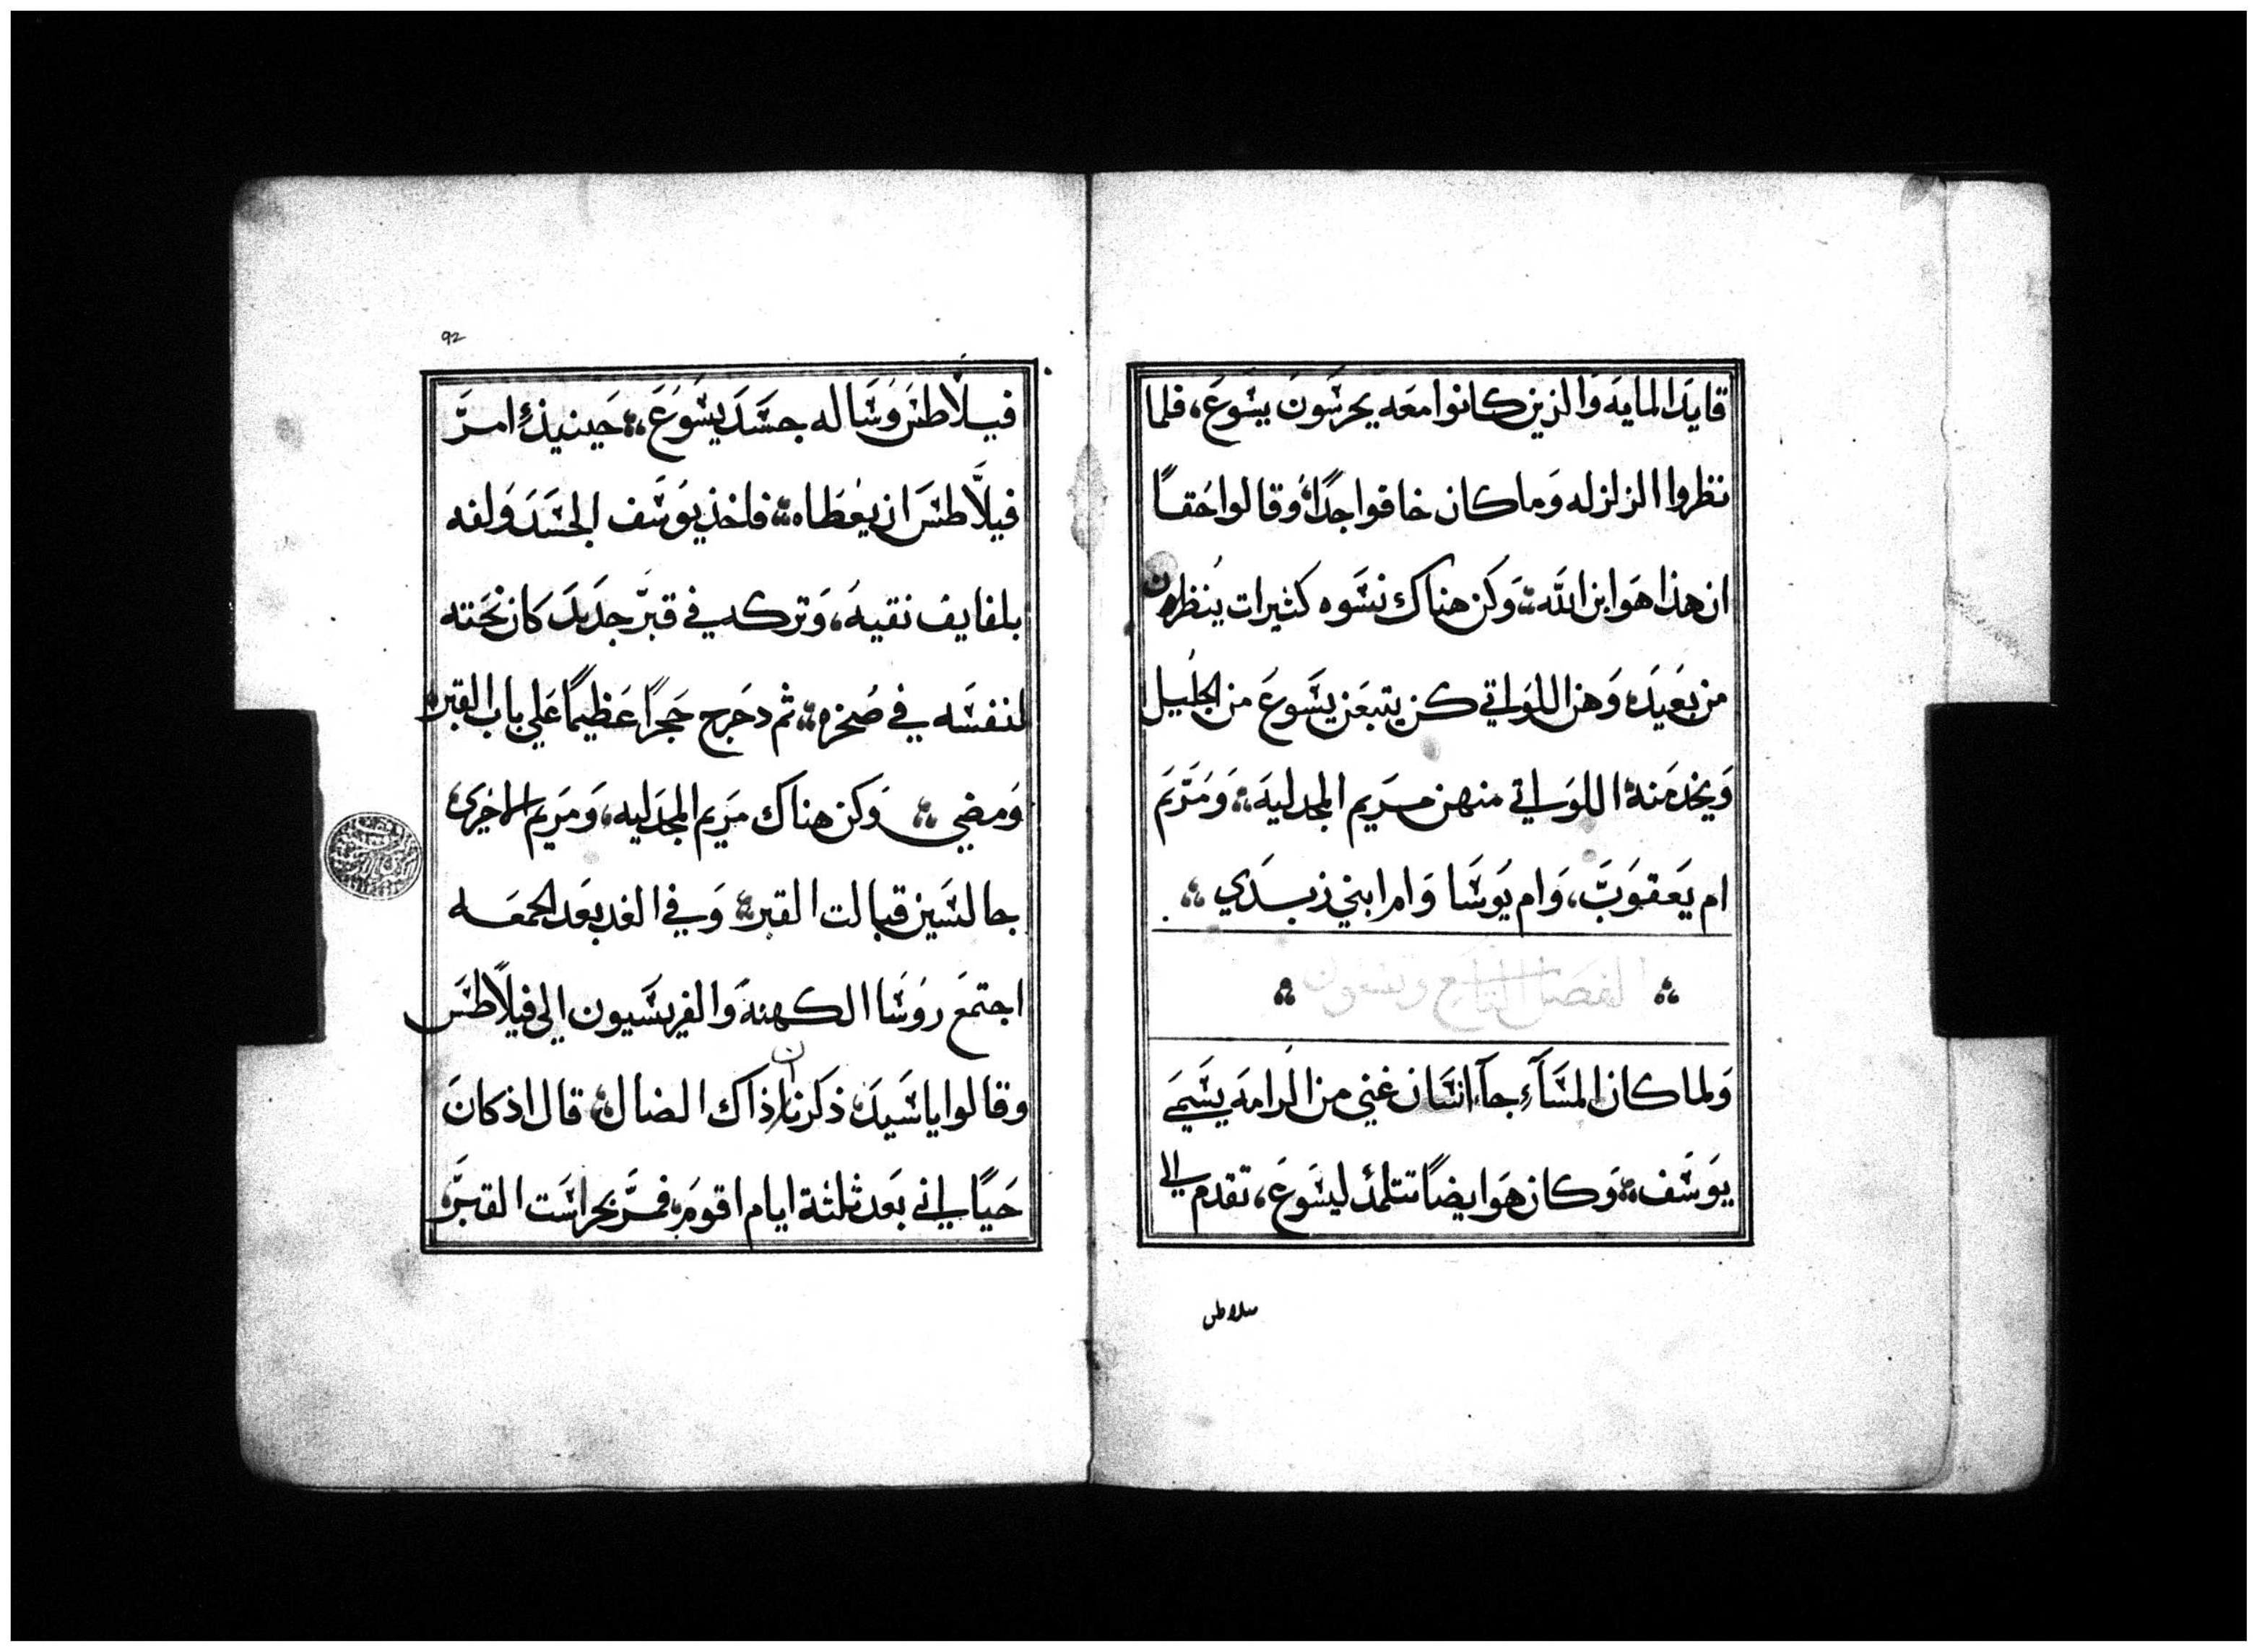 قايد المايه والذين كانوا معه يحرسون يسوع، فلما
نظروا الزلزله وما كان خافوا جدًا وقالوا حقًا
ان هذا هو ابن الله وكن هناك نسوه كثيرات ينظرن
من بعيد وهن اللواتي كن يتبعن يسوع من الجليل
ويخدمنه اللواتي منهن مريم المجدليه ومريم
ام يعقوب، وام يوسا وام ابني زبدي
الفصل التاسع وتسعون
ولما كان المسآء جآ انسان غني من الرامه يسمي
يوسف وكان هو ايضًا تتلمذ ليسوع، تقدم الي
فيلاطس
92
فيلاطس وساله جسد يسوع، حينيذٍ امر
فيلاطس ان يعطاه فاخذ يوسف الجسد ولفه
بلفايف نقيه، وتركه في قبر جديد كان نحته
لنفسه في صخره ثم دحرج حجرًا عظيمًا علي باب القبر
ومضي وكن هناك مريم المجدليه، ومريم الاخري
جالسين قبالت القبر وفي الغد بعد الجمعه
اجتمع روسا الكهنه والفريسيون الي فيلاطس
وقالوا يا سيد ذكرنا ان ذاك الضال قال اذ كان
حيًا اني بعد ثلثة ايام اقوم فمر بحراست القبر